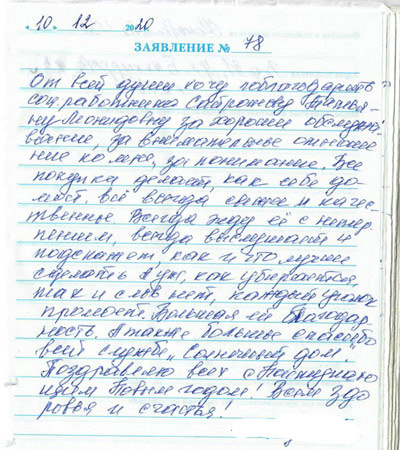 « 10 » 12 2020
ЗАЯВЛЕНИЕ № 78
От всей души хочу поблагодарить
соц. работника Татья-
ну за хорошее обслужи-
вание, за внимательное отноше-
ние ко мне, за понимание. Все
покупки делает, как себе до-
мой, всё всегда свежее и качес-
твенное. Всегда жду её с нетер-
пением, всегда выслушает и
подскажет, как и что лучше
сделать. А уж, как убирается,
так и слов нет, каждый уголок
промоет. Большая ей благодар-
ность. А также большое спасибо
всей службе „Солнечный дом".
Поздравляю всех с Наступаю-
щим Новым годом! Всем здо-
ровья и счастья!